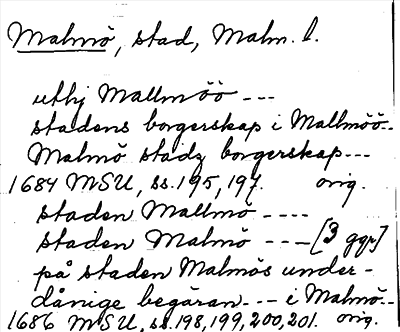 Malmö, stad, Malm. l.
uthj Mallmöö ---
stadens borgerskap i Mallmöö--
Malmö stadz borgerskap---
1684 MSU, ss. 195, 197. orig.
staden Mallmö ----
staden Malmö ---- [3 ggr]
på staden Malmös under-
dånige begäran --- i Malmö--
1686 MSU, ss. 198, 199, 200, 201. orig.